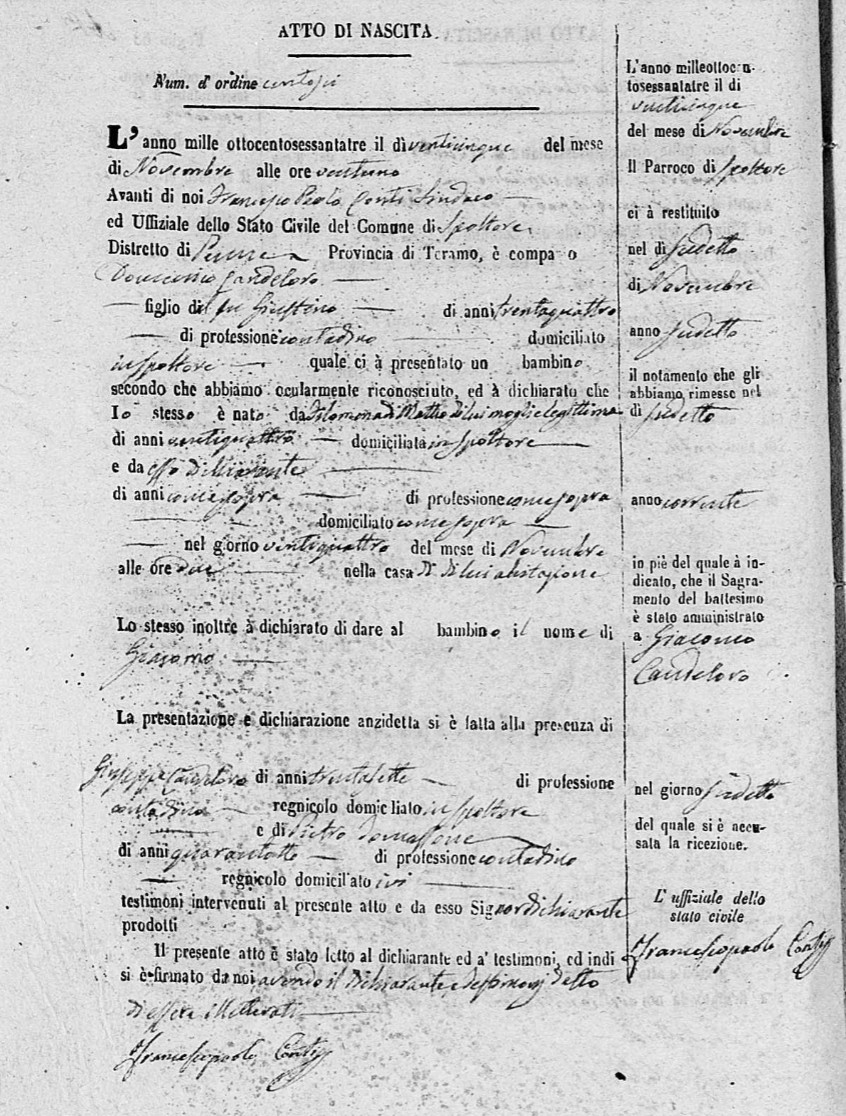 ATTO DI NASCITA
Num. d' ordine centosei
L' anno mille ottocentosessantatre il dì venticinque del mese
di Novembre alle ore ventuno
Avanti di noi Francesco Paolo Conti Sindaco
ed Uffiziale dello Stato Civile del Comune di Spoltore
Distretto di Penne Provincia di Teramo, è compa o
Candeloro
figlio del fu Giustino di anni trentaquattro
di professione contadino domiciliato
in Spoltore quale ci à presentato un bambino
secondo che abbiamo ocularmente riconosciuto, ed à dichiarato che
lo stesso è nato da Filomena di Matteo di lui moglie legittima
di anni ventiquattro domiciliata in Spoltore
e da esso dichiarante
di anni come sopra di professione come sopra
domiciliato come sopra
nel giorno ventiquattro del mese di Novembre
alle ore due nella casa di di lui abitazione
Lo stesso inoltre à dichiarato di dare al bambino il nome di
Giacomo
La presentazione e dichiarazione anzidetta si è fatta alla presenza di
Giuseppe Candeloro di anni trentasette di professione
contadino regnicolo domiciliato in Spoltore
e di Pietro
di anni quarantotto di professione contadino
regnicolo domiciliato ivi
testimoni intervenuti al presente atto e da esso Signor dichiarante
prodotti
Il presente atto è stato letto al dichiarante ed a' testimoni, ed indi
si è firmato da noi avendo il dichiarante e testimonj detto
di essere illetterati
Francescopaolo Conti
L'anno milleottocen-
tosessantatre il di
venticinque
del mese di Novembre
Il Parroco di Spoltore
ci à restituito
nel dì sudetto
di Novembre
anno sudetto
il notamento che gli
abbiamo rimesse nel
dì sudetto
anno corrente
in piè del quale à in-
dicato, che il Sagra-
mento del battesimo
è stato amministrato
a Giacomo
Candeloro
nel giorno sudetto
del quale si è accu-
sata la ricezione.
L' uffiziale dello
stato civile
Francescopaolo Conti